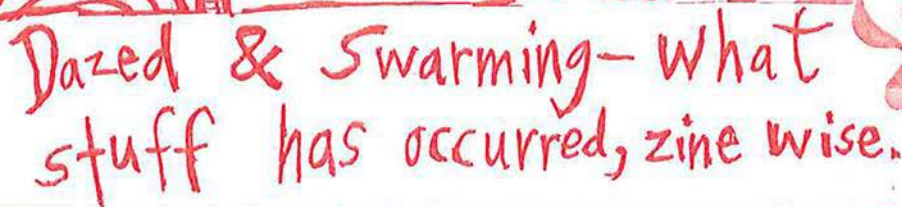 Dazed & Swarming- what
stuff has occurred, zine wise.